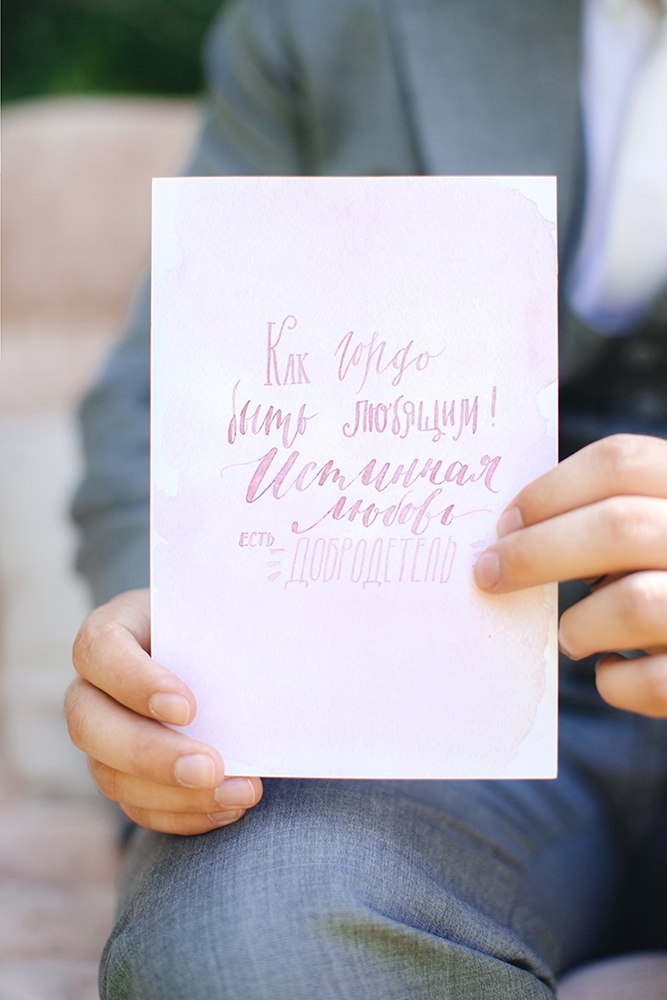 Как гордо
быть любящим!
Истинная
любовь
есть ДОБРОДЕТЕЛЬ